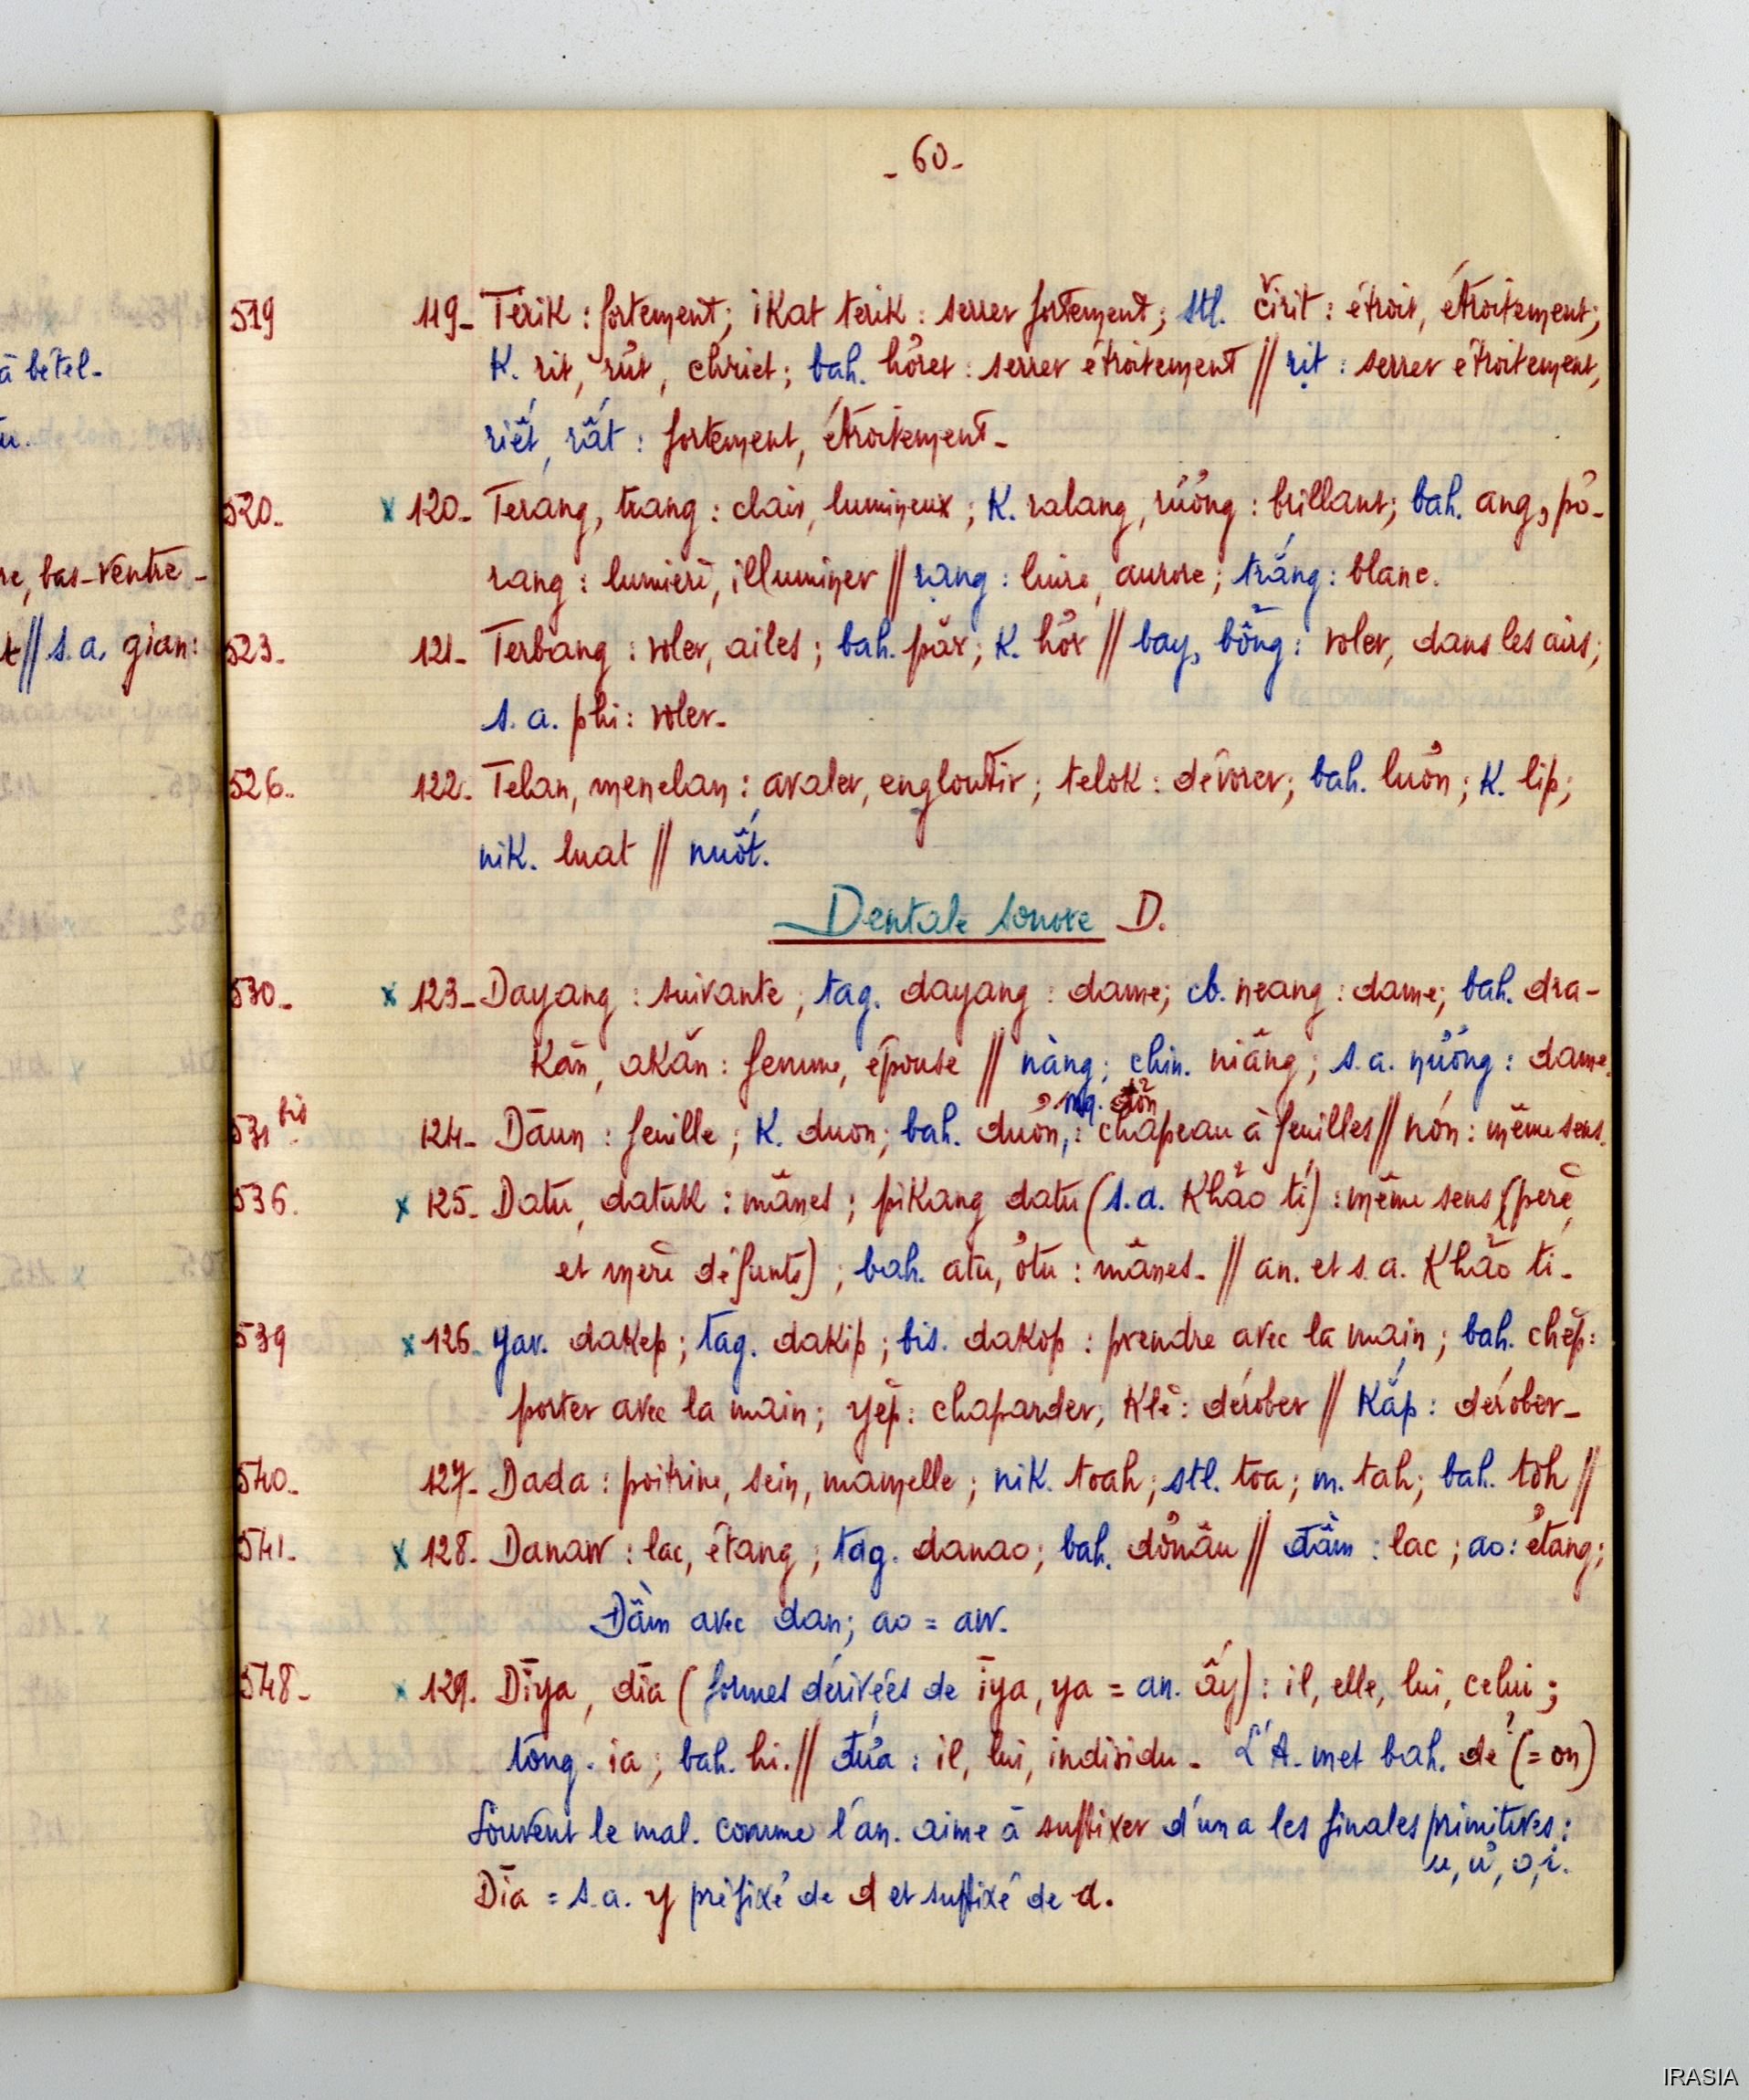 - 60 -
519 119- Terik : fortement; ikat terik : serrer fortement; stl. čirit : étroit, étroitement;
à bétel- K. rit, rŭt, chriet; bah. hŏret : serrer étroitement // rịt : serrer étroitement,
riết, rất : fortement, étroitement-
520- x 120- Terang, trang : clair, lumineux; K. ralang, rương : brillant; bah. ang, pơ-
re, bas-ventre - rang : lumière, illuminer // rạng : luire, aurore; trắng : blanc.
// s.a. gian: 523- 121- Terbang : voler, ailes; bah. păr; K. hơr // bay, bổng : voler, dans les airs;
s.a. phi : voler-
526- 122- Telan, menelan : avaler, engloutir; telok : dévorer; bah. luơn; K. lip;
nik. luat // nuốt.
Dentale sonore D.
530- x 123- Dayang : suivante; tag. dayang : dame; cb. neang : dame; bah. dra-
kăn, akăn : femme, épouse // nàng; chin. niâng; s.a. nương : dame.
mq. đôn
531 bis 124- Daun : feuille; K. duon; bah. duơn, : chapeau à feuilles // nón : même sens.
536. x 125- Datu, datuk : mânes; pikang datu (s.a. Khảo tỉ) : même sens (père
et mère défunts); bah. atu, ơtu : mânes- // an. et s.a. Khảo tỉ-
539 x 126- Yav. dakep; tag. dakip; bis. dakop : prendre avec la main; bah. chĕp :
porter avec la main; yĕp : chaparder, klĕ : dérober // Kắp : dérober-
540- 127- Dada : poitrine, sein, mamelle; nik. toah; stl. toa; m. tah; bah. tŏh //
541- x 128- Danaw : lac, étang; tag. danao; bah. dơnâu // đầm : lac; ao : étang;
Đầm avec dan; ao = aw.
548- x 129. Dīya, dīa (formes dérivées de īya, ya = an. ấy) : il, elle, lui, celui;
tong. ia; bah. hi. // đứa : il, lui, individu- L'A. met bah. de (= on)
Souvent le mal. comme l'an. aime à suffixer d'un a les finales primitives :
u, ư, o, i.
Dīa = s.a. y préfixé de d et suffixé de a.
IRASIA